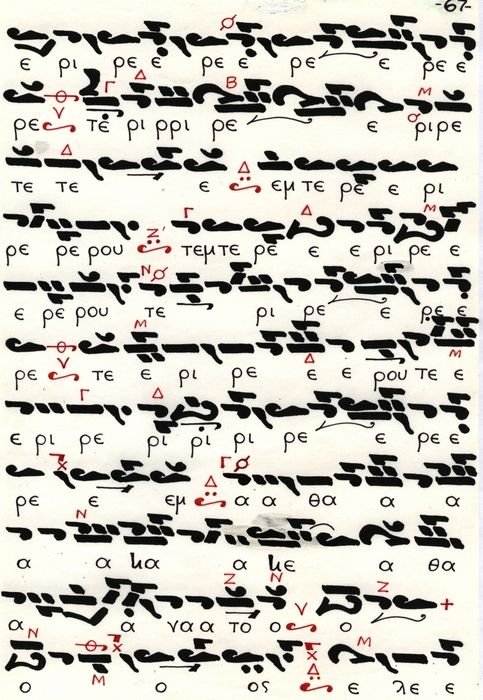 -67-
ε ρι ρε ε ρε ε ρε ε ρε ε
ρε τε ρι ρρι ρε ε ριρε
τε τε ε εμ τε ρε ε ρι
ρε ρε ρου τεμτε ρε ε ε ρι ρε ε
ε ρε ρου τε ρι ρε ε ρε ε
ρε τε ε ρι ρε ε ε ρου τε ε
ε ρι ρε ρι ρι ρι ρε ε ρε
ρε ε εμ α α θα α α
α α χα α χε α θα
α α να α το ο ο
ο ο ος ε λε ε